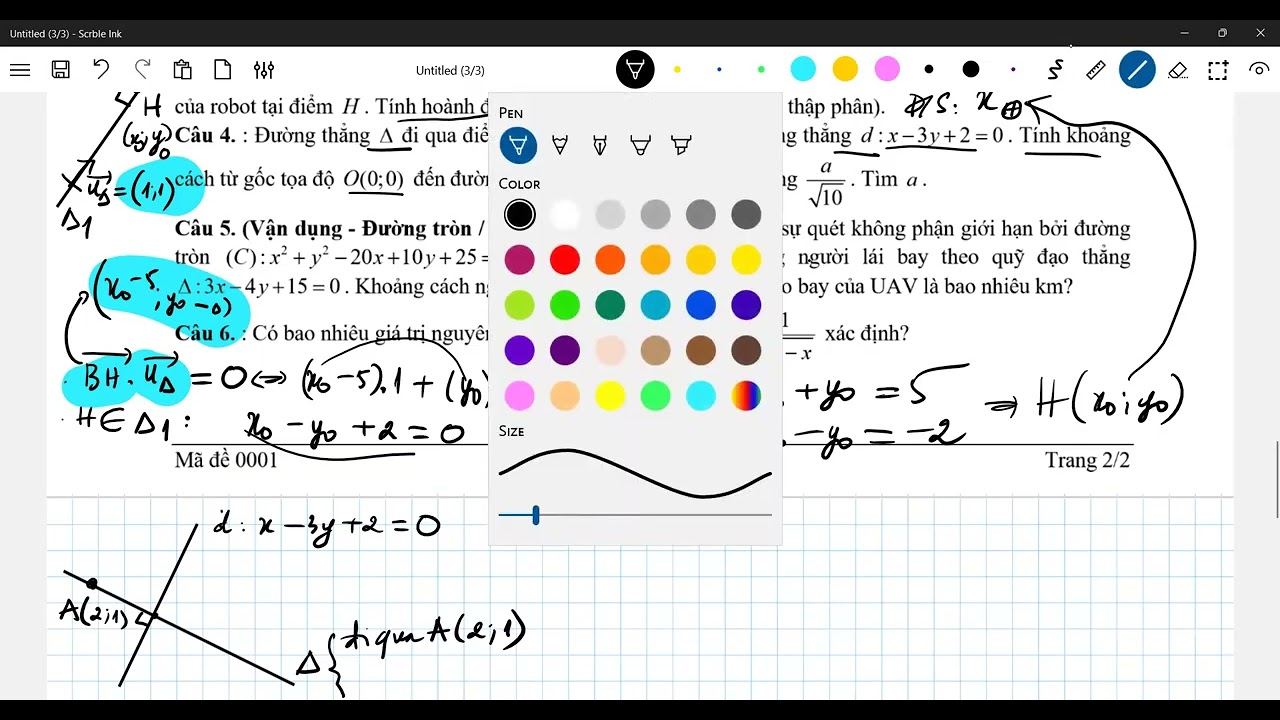 Untitled (3/3) - Scrble Ink
Untitled (3/3)
H của robot tại điểm H. Tính hoành thập phân). x
(x0; y0) Câu 4. : Đường thẳng Δ đi qua thẳng d : x − 3y + 2 = 0. Tính khoảng
uΔ = (1;1) cách từ gốc tọa độ O(0;0) đến a/√10. Tìm a.
Δ1
Câu 5. (Vận dụng - Đường tròn / sự quét không phận giới hạn bởi đường
tròn (C) : x² + y² − 20x + 10y + 25 = người lái bay theo quỹ đạo thẳng
Δ : 3x − 4y + 15 = 0. Khoảng cách bay của UAV là bao nhiêu km?
(x0 − 5;
Câu 6. : Có bao nhiêu giá trị nguyên 1 − x xác định?
BH . uΔ = 0 ⇔ (x0 − 5).1 + (y0 + y0 = 5
H ∈ Δ1 : x0 − y0 + 2 = 0 − y0 = −2 ⇒ H(x0; y0)
Mã đề 0001 Trang 2/2
PEN
COLOR
SIZE
d : x − 3y + 2 = 0
A(2;1)
Δ { đi qua A(2;1)